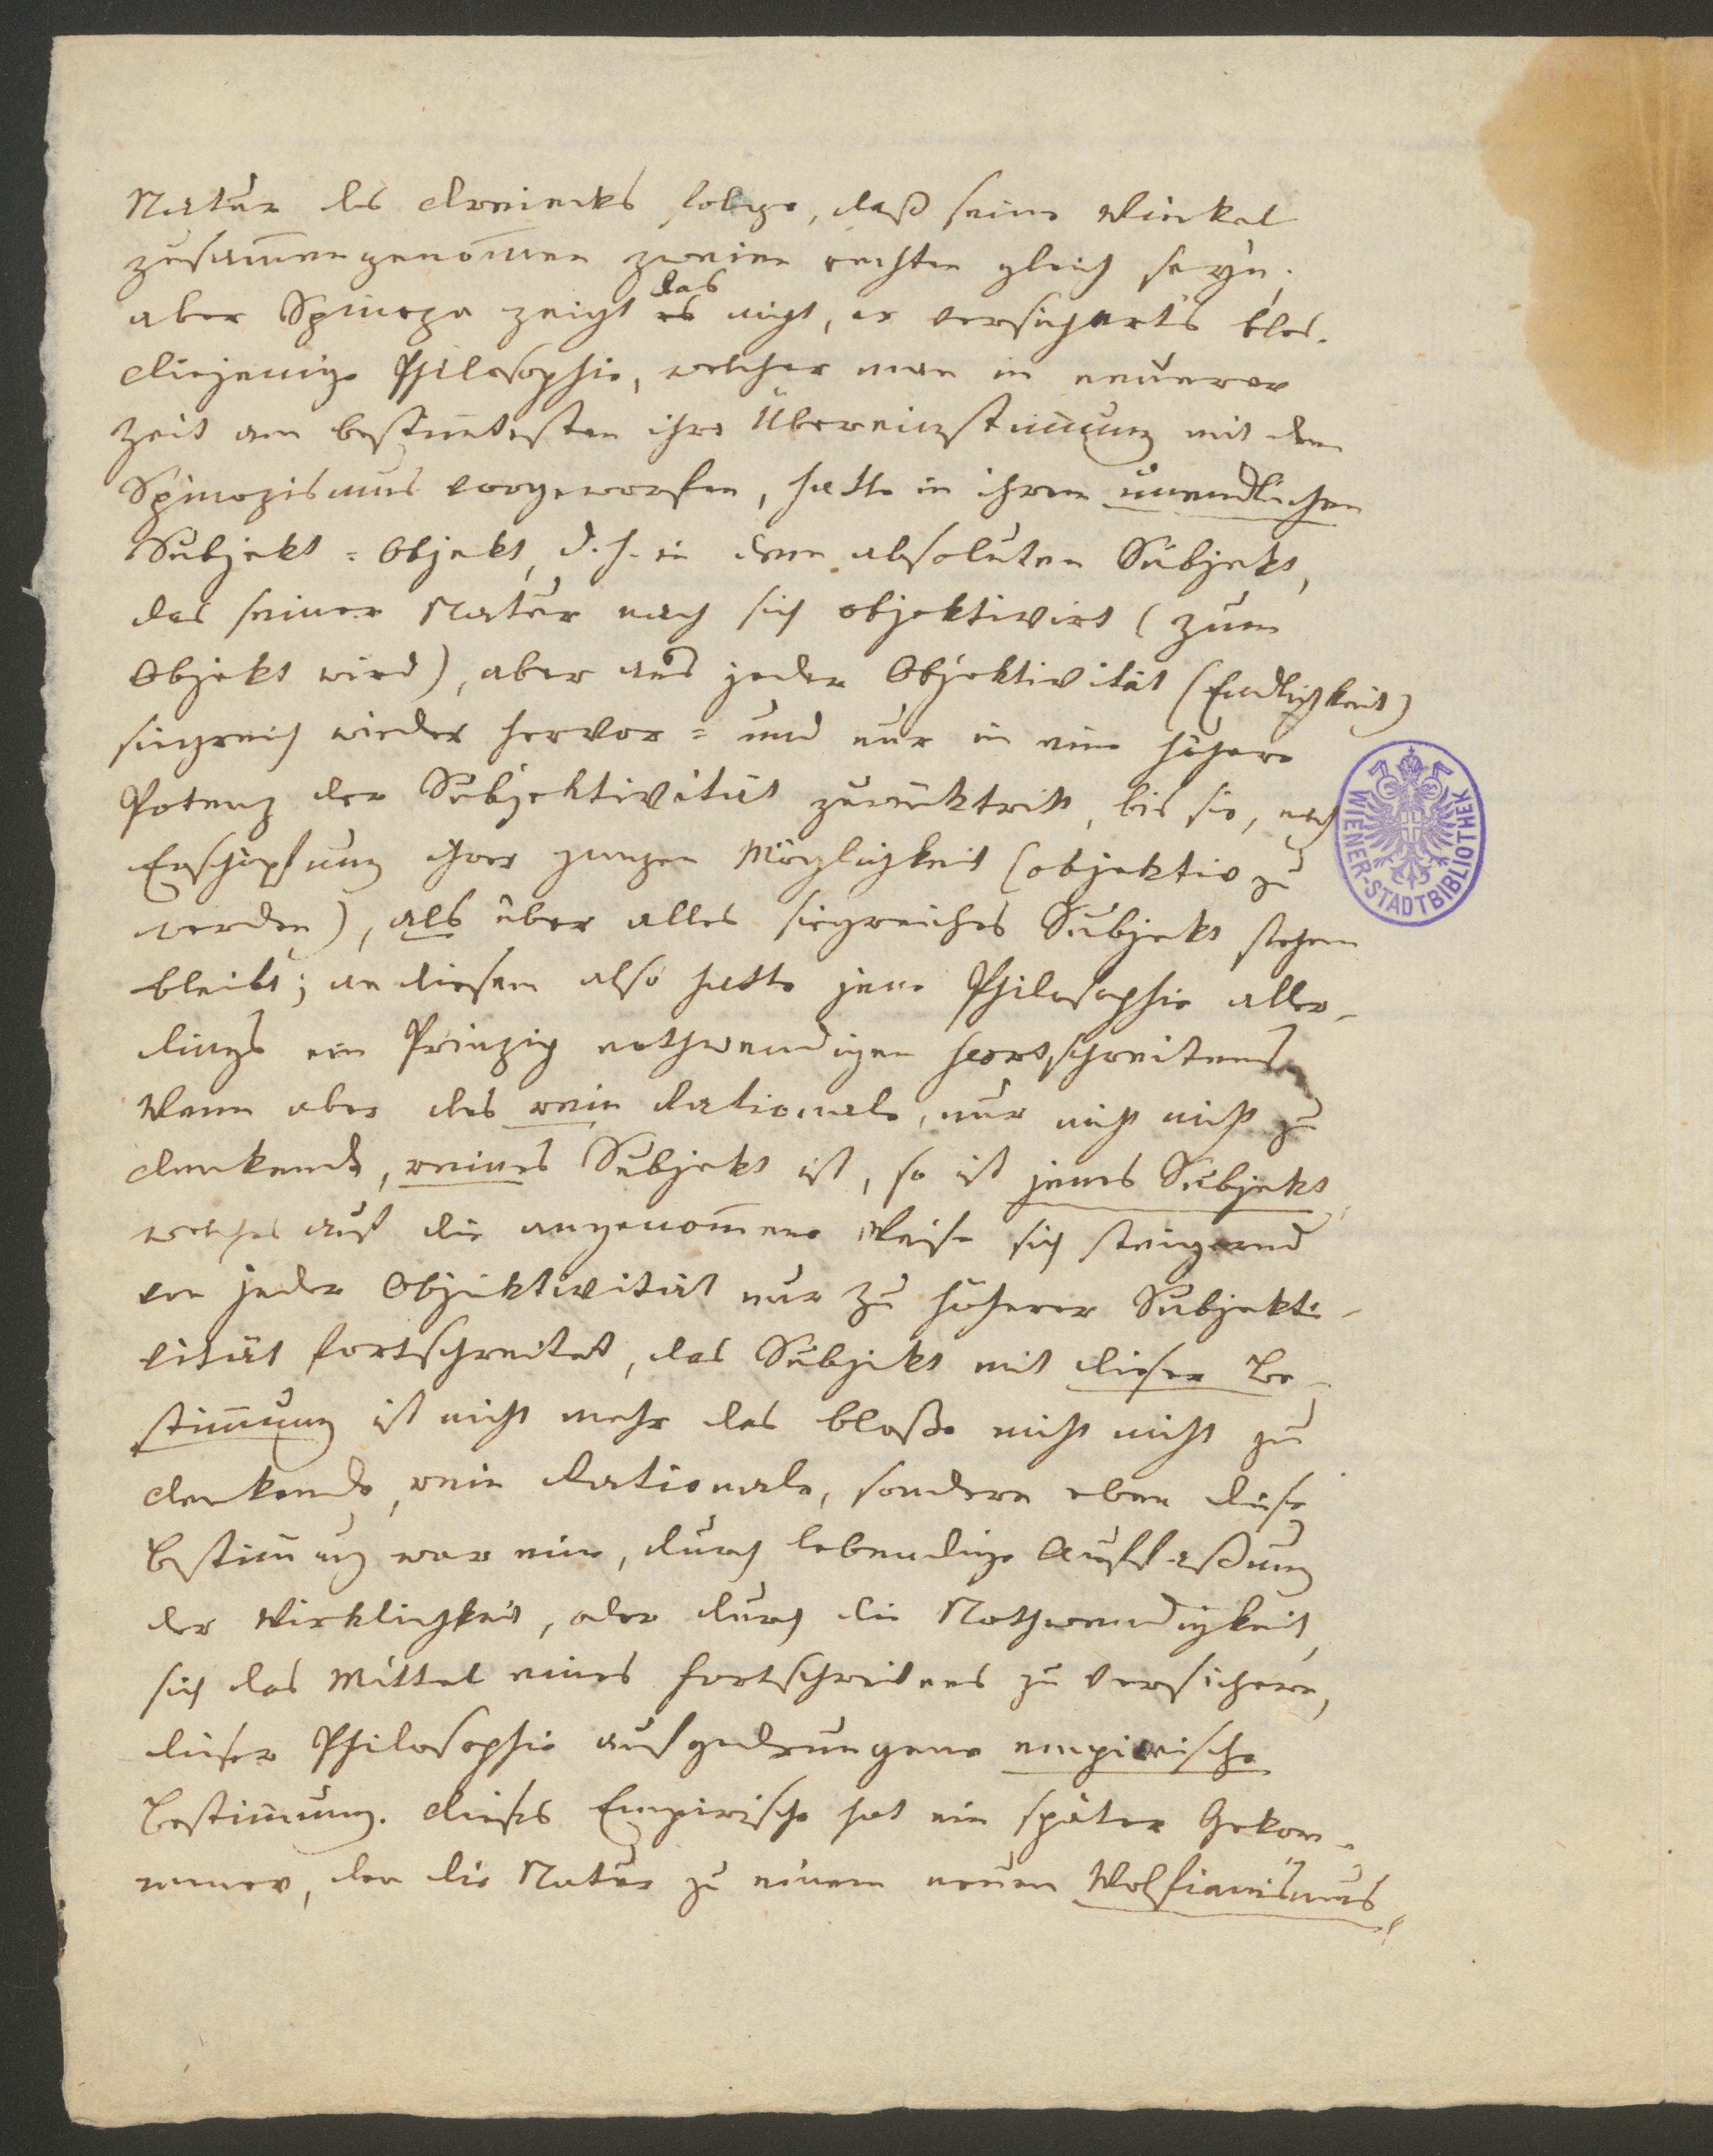 Natur des Dreiecks folge, daß seine Winkel
zusam̄engenom̄en zweien rechten gleich seyn;
das
aber Spinoza zeigt es nicht, er versicherts blos.
Diejenige Philosophie, welcher man in neuerer
Zeit am bestim̄testen ihre Übereinstim̄ung mit dem
Spinozismus vorgeworfen, hatte in ihrem unendlichen
Subjekt=Objekt, d.h. in dem absoluten Subjekt,
das seiner Natur nach sich objektivirt (zum
Objekt wird), aber aus jeder Objektivität (Endlichkeit)
siegreich wieder hervor= und nur in eine höhere
Potenz der Subjektivität zurücktritt, bis sie, nach
Erschöpfung ihrer ganzen Möglichkeit (objektiv zu
werden), als über alles siegreiches Subjekt stehen
bleibt; an diesem also hatte jene Philosophie aller-
dings ein Prinzip nothwendigen Fortschreitens
Wenn aber das rein Rationale, nur nicht nicht zu
denkende, reines Subjekt ist, so ist jenes Subjekt,
welches auf die angenom̄ene Weise sich steigernd
von jeder Objektivität nur zu höherer Subjekti-
vität fortschreitet, das Subjekt mit dieser Be-
stim̄ung ist nicht mehr das bloße nicht nicht zu
denkende, rein Rationale, sondern eben diese
Bestim̄ung war eine, durch lebendige Auffaßung
der Wirklichkeit, oder durch die Nothwendigkeit,
sich das Mittel eines Fortschreitens zu versichern,
dieser Philosophie aufgedrungene empirische
Bestim̄ung. Dieses Empirische hat ein später Gekom-
mener, den die Natur zu einem neuen Wolfianismus
WIENER-STADTBIBLIOTHEK